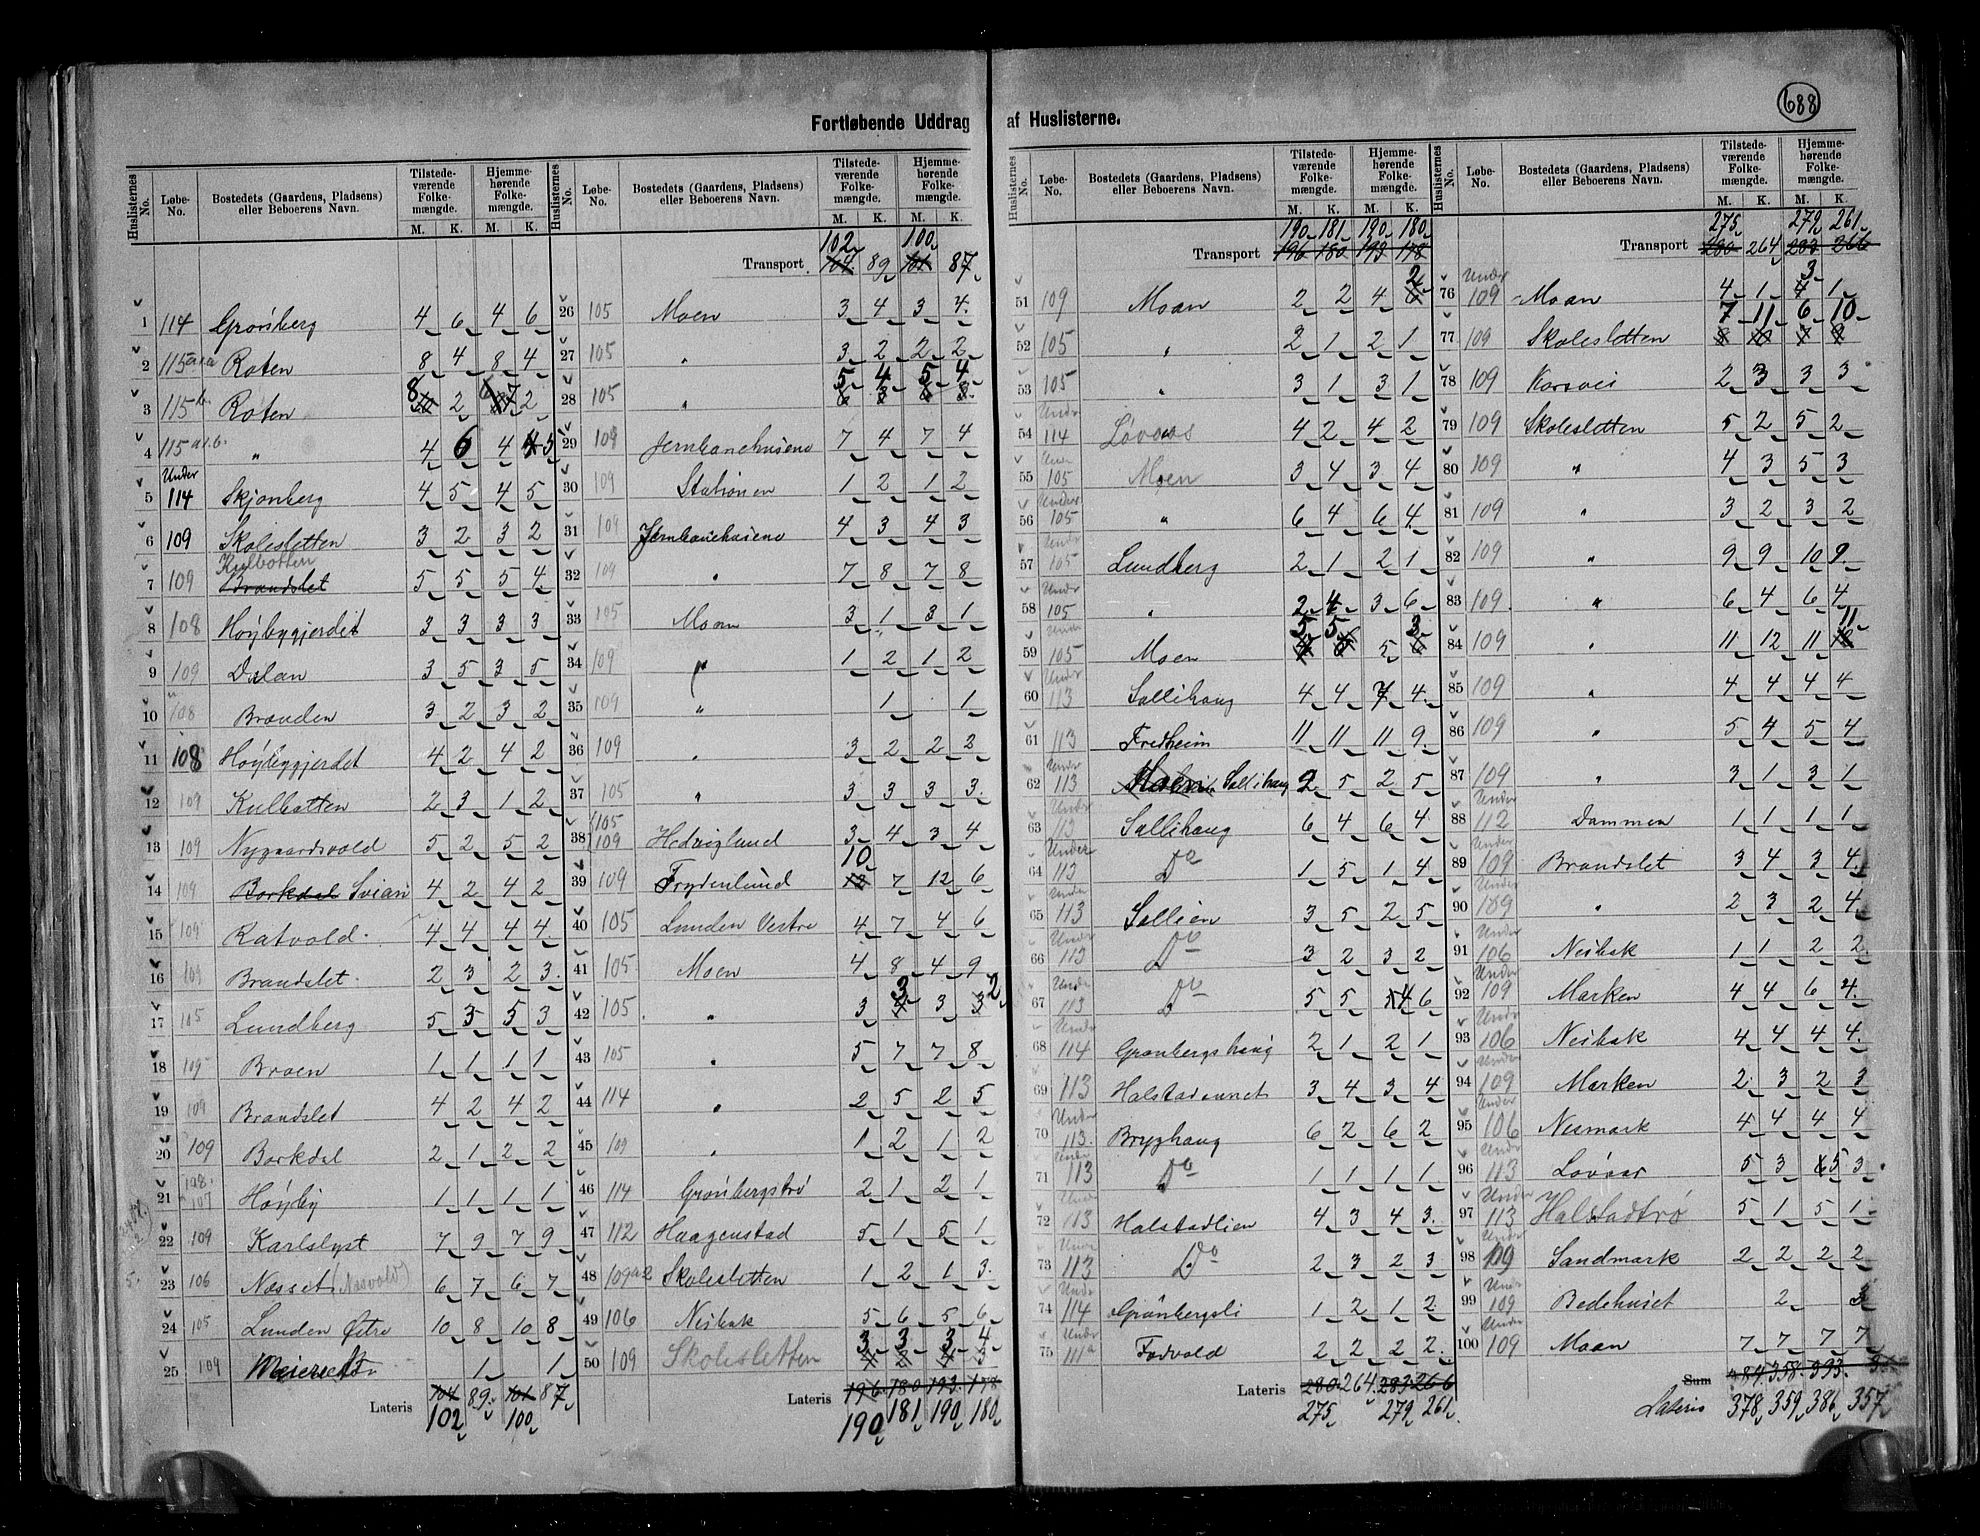 688
Fortløbende Uddrag af Huslisterne.
Huslisternes No. Løbe-No. Bostedets (Gaardens, Pladsens) eller Beboerens Navn. Tilstedeværende Folkemængde. M. K. Hjemmehørende Folkemængde. M. K.
1 114 Grønberg 4 6 4 6
2 115 Roten 8 4 8 4
3 115b Roten 8 2 2
4 115 " 4 6 4
5 Under 114 Skjønberg 4 5 4 5
6 109 Skolesletten 3 2 3 2
7 109 Kulbotten Brandslet 5 5 5 4
8 108 Høybygjerdet 3 3 3 3
9 109 Dalan 3 5 3 5
10 108 Brænden 3 2 3 2
11 108 Høybygjerdet 4 2 4 2
12 109 Kulbotten 2 3 1 2
13 109 Nygaardsvold 5 2 5 2
14 109 Borkdal Svian 4 2 4 2
15 109 Ratvold 4 4 4 4
16 109 Brandslet 2 3 2 3
17 105 Lundberg 5 3 5 3
18 109 Broen 1 1 1 1
19 109 Brandslet 4 2 4 2
20 109 Borkdal 2 1 2 2
21 108 107 Høyby 1 1 1 1
22 109 Karlslyst 7 9 7 9
23 106 Næsset (Næsvold) 6 7 6 7
24 105 Lunden Østre 10 8 10 8
25 109 Meieriet 1 1
Lateris 104 89 101 87
102 100
Huslisternes No. Løbe-No. Bostedets (Gaardens, Pladsens) eller Beboerens Navn. Tilstedeværende Folkemængde. M. K. Hjemmehørende Folkemængde. M. K.
102 100
Transport 104 89 101 87
26 105 Moen 3 4 3 4
27 105 " 3 2 2 2
28 105 " 5 4 5 4
29 109 Jernbanehusene 7 4 7 4
30 109 Stationen 1 2 1 2
31 109 Jernbanehusene 4 3 4 3
32 109 " 7 8 7 8
33 105 Moan 3 1 3 1
34 109 " 1 2 1 2
35 109 " 1 1
36 109 " 3 2 2 2
37 105 " 3 3 3 3
38 105 109 Hedviglund 3 4 3 4
39 109 Frydenlund 10 7 12 6
40 105 Lunden Vestre 4 7 4 6
41 105 Moen 4 8 4 9
42 105 " 3 3 3 2
43 105 " 5 7 7 8
44 114 " 2 5 2 5
45 109 " 1 2 1 2
46 114 Grønbergstrø 2 1 2 1
47 112 Haagenstad 5 1 5 1
48 109 Skolesletten 1 2 1 3
49 106 Nesbak 5 6 5 6
50 109 Skolesletten 3 3 3 4
Lateris 196 180 193 178
190 181 190 180
Huslisternes No. Løbe-No. Bostedets (Gaardens, Pladsens) eller Beboerens Navn. Tilstedeværende Folkemængde. M. K. Hjemmehørende Folkemængde. M. K.
190 181 190 180
Transport 196 180 193 178
51 109 Moan 2 2 4 2
52 105 " 2 1 2 1
53 105 " 3 1 3 1
54 Under 114 Løvaas 4 2 4 2
55 Under 105 Moen 3 4 3 4
56 Under 105 " 6 4 6 4
57 Under 105 Lundberg 2 1 2 1
58 Under 105 " 2 4 3 6
59 Under 105 Moen 5 5 5 3
60 Under 113 Sallihaug 4 4 4
61 113 Fredheim 11 11 11 9
62 Under 113 Sallihaug 2 5 2 5
63 Under 113 Sallihaug 6 4 6 4
64 Under 113 Do 1 5 1 4
65 Under 113 Sallien 3 5 2 5
66 Under 113 Do 3 2 3 2
67 Under 113 Do 5 5 4 6
68 Under 114 Grønbergshaug 2 1 2 1
69 113 Halstadvinet 3 4 3 4
70 Under 113 Brygghaug 6 2 6 2
71 Under 113 Do 1 1 1 1
72 Under 113 Halstadlien 4 3 4 3
73 Under 113 Do 2 3 2 3
74 Under 114 Grønbergsli 1 2 1 2
75 Under 111a Fodvold 2 2 2 2
Lateris 280 264 283 266
275 279 261
Huslisternes No. Løbe-No. Bostedets (Gaardens, Pladsens) eller Beboerens Navn. Tilstedeværende Folkemængde. M. K. Hjemmehørende Folkemængde. M. K.
275 279 261
Transport 280 264 283 266
76 Under 109 Moan 4 1 3 1
77 109 Skolesletten 7 11 6 10
78 109 Korsvei 2 3 3 3
79 109 Skolesletten 5 2 5 2
80 109 " 4 3 5 3
81 109 " 3 2 3 2
82 109 " 9 9 10 9
83 109 " 6 4 6 4
84 109 " 11 12 11 11
85 109 " 4 4 4 4
86 109 " 5 4 5 4
87 109 " 3 1 3 1
88 Under 112 Dammen 1 1 1 1
89 Under 109 Brandslet 3 4 3 4
90 Under 109 " 2 3 2 4
91 Under 106 Nesbak 1 1 2 2
92 Under 109 Marken 4 4 6 4
93 Under 106 Nesbak 4 4 4 4
94 Under 109 Marken 2 3 2 3
95 Under 106 Nesmark 4 4 4 4
96 Under 113 Løvaas 5 3 5 3
97 Under 113 Halstadtrø 5 1 5 1
98 Under 109 Sandmark 2 2 2 2
99 Under 109 Bedehuset 2 3
100 Under 109 Moan 7 7 7 7
Sum 384 358 393
Lateris 378 359 386 357